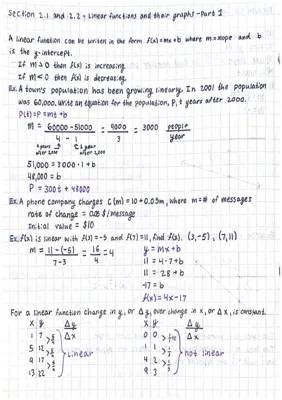 Section 2.1 and 2.2 - Linear functions and their graphs - Part 1
A linear function can be written in the form f(x)=mx+b where m=slope and b
is the y-intercept.
If m>0 then f(x) is increasing
If m<0 then f(x) is decreasing
Ex. A town's population has been growing linearly. In 2001 the population
was 60,000. Write an equation for the population, P, t years after 2000.
P(t)=P=mt+b
m = 60000-51000 = 9000 = 3000 people
4 - 1 3 year
4 years after 2000 1 year after 2000
51,000 = 3000·1+b
48,000 = b
P = 300t + 48000
Ex. A phone company charges C(m)=10+0.05m, where m=# of messages
rate of change = 0.05 $/message
Initial value = $10
Ex. f(x) is linear with f(3)=-5 and f(7)=11, find f(x). (3,-5); (7,11)
m = 11-(-5) = 16 = 4 y=mx+b
7-3 4 11 = 4·7+b
11 = 28+b
-17 = b
f(x)=4x-17
For a linear function change in y, or Δy, over change in x, or Δx, is constant.
x y Δy x y Δy
1 7 Δx 0 0 Δx
5 12 1 1
9 17 linear 4 2 not linear
13 22 9 3